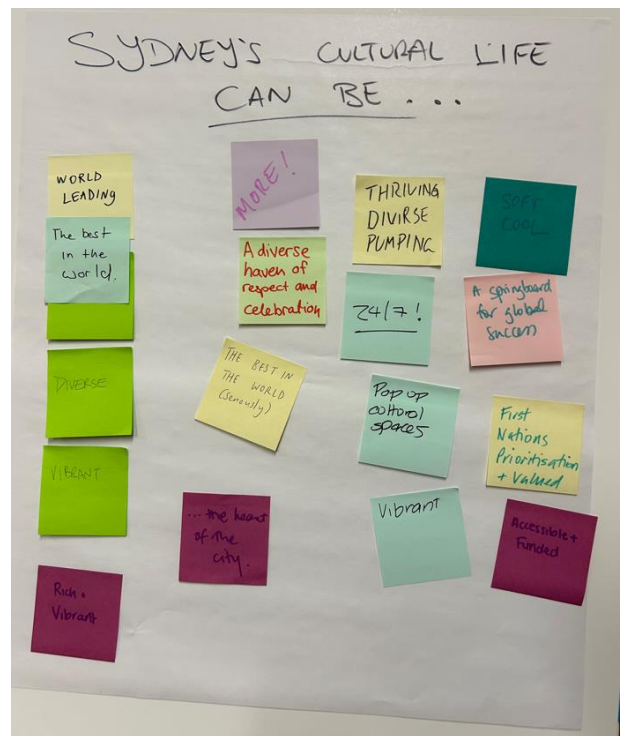 SYDNEY'S CULTURAL LIFE
CAN BE ...
WORLD
LEADING
The best
in the
world.
DIVERSE
VIBRANT
Rich +
Vibrant
MORE!
A diverse
haven of
respect and
celebration
THE BEST IN
THE WORLD
(seriously)
... the heart
of the
city.
THRIVING
DIVIRSE
PUMPING
24/7!
Pop up
cultural
spaces
Vibrant
SOFT
COOL
A springboard
for global
success
First
Nations
Prioritisation
+ Valued
Accessible +
Funded